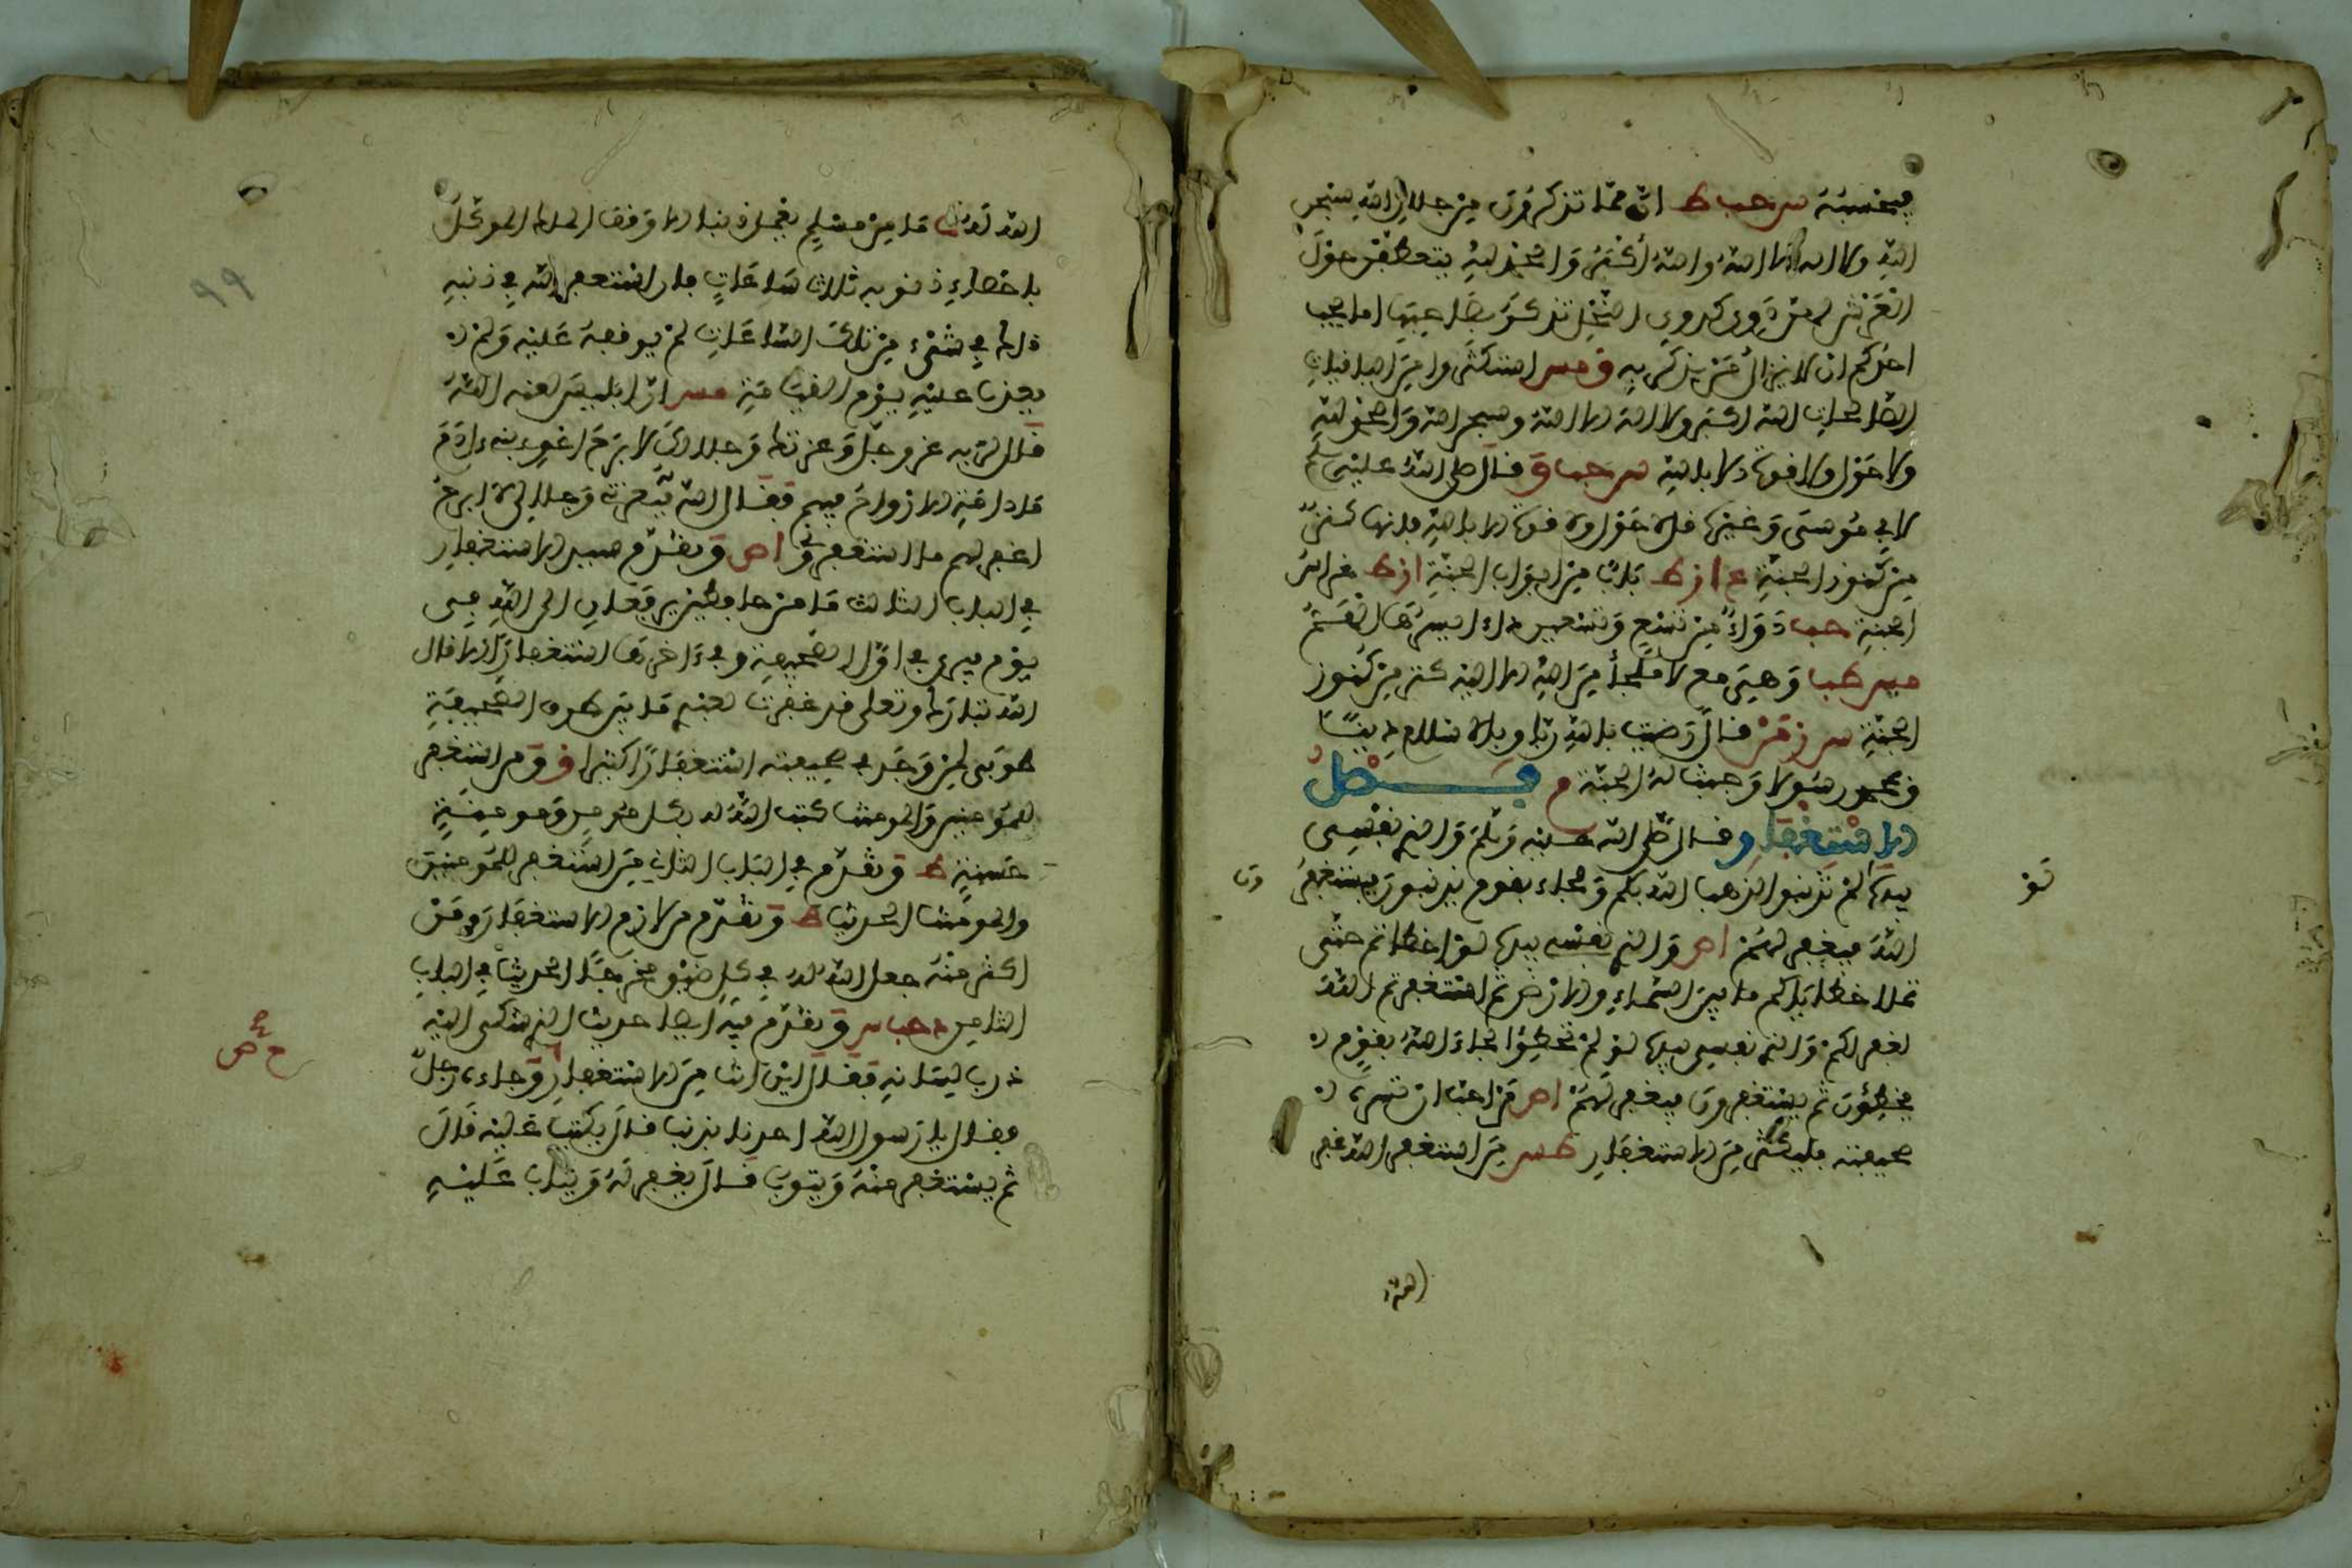 فيغسنه س حب ط ان مما تذكرون من جلال الله سبحن
الله ولا اله الا الله والله أكبر والحمد لله يتعطفن حول
العرش لهن دوي كدوي النحل تذكر بصاحبها اما يحب
احدكم ان لا يزال من يذكر به ق مس استكثروا من الباقيات
الصالحات الله اكبر ولا اله الا الله وسبحن الله والحمد لله
ولا حول ولا قوة الا بالله س حب ا و قال صلى الله عليه وسلم
لابي موسى وغيره قل لا حول ولا قوة الا بالله فانها كنز
من كنوز الجنة ع ا ز ط باب من ابواب الجنة ا ز ط غراس
الجنة حب دواء من تسع وتسعين داء ايسرها الهم
مس ط با وهي مع لا ملجأ من الله الا اليه كنز من كنوز
الجنة س ز من قال رضيت بالله ربا وبالاسلام دينا
وبمحمد رسولا وجبت له الجنة م فصل
الاستغفار و قال صلى الله عليه وسلم والذي نفسي
بيده لو لم تذنبوا لذهب الله بكم ولجاء بقوم يذنبون فيستغفرون
الله فيغفر لهم ا ص والذي نفسي بيده لو اخطاتم حتى
تملا خطاياكم ما بين السماء والارض ثم استغفرتم الله
لغفر لكم والذي نفسي بيده لو لم تخطئوا لجاء الله بقوم
يخطئون ثم يستغفرون فيغفر لهم ا ص من احب ان تسره
صحيفته فليكثر من الاستغفار ط س من استغفر الله غفر
الله
الله له ت ما من مسلم يعمل ذنبا الا وقف الملك الموكل
باحصاء ذنوبه ثلاث ساعات فان استغفر الله في ذنبه
ذلك في شيء من تلك الساعات لم يوقفه عليه ولم
يعذب عليه يوم القيامة مس ان ابليس لعنه الله
قال لربه عز وجل وعزتك وجلالك لا ابرح اغوي بني ءادم
ما دامت الارواح فيهم فقال الله فبعزتي وجلالي لا ابرح
اغفر لهم ما استغفروني ا ص وتقدم سيد الاستغفار
في الباب الثالث ما من حافظين يرفعان الى الله في
يوم فيرى في اول الصحيفة وفي ءاخرها استغفارا الا قال
الله تبارك وتعلى قد غفرت لعبدي ما بين طرفي الصحيفة
طوبى لمن وجد في صحيفته استغفارا كثيرا ق و من استغفر
للمومنين والمومنات كتب الله له بكل مومن ومومنة
حسنة ط وتقدم في الباب الثاني من استغفر للمومنين
والمومنات الحديث ط وتقدم من لازم الاستغفار ومن
اكثر منه جعل الله له في كل ضيق مخرجا الحديث في الباب
الثامن د حب س ق وتقدم فيه ايضا حديث الذي شكى اليه
ذرب لسانه فقال اين انت من الاستغفار وجاءه رجل
فقال يا رسول الله احدنا يذنب قال يكتب عليه قال
ثم يستغفر منه ويتوب قال يغفر له ويتاب عليه